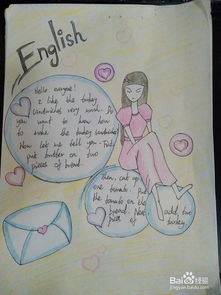 English
Hello everyone!
I like the turkey
sandwiches very much. Do
you want to know how
to make the turkey sandwiches?
Now let me tell you. First
put butter on two
pieces of bread.
Then, cut up
one tomato. Put
the tomato on the
bread. Next
add two
pieces of
turkey.
Baidu经验
jingyan.baidu.com